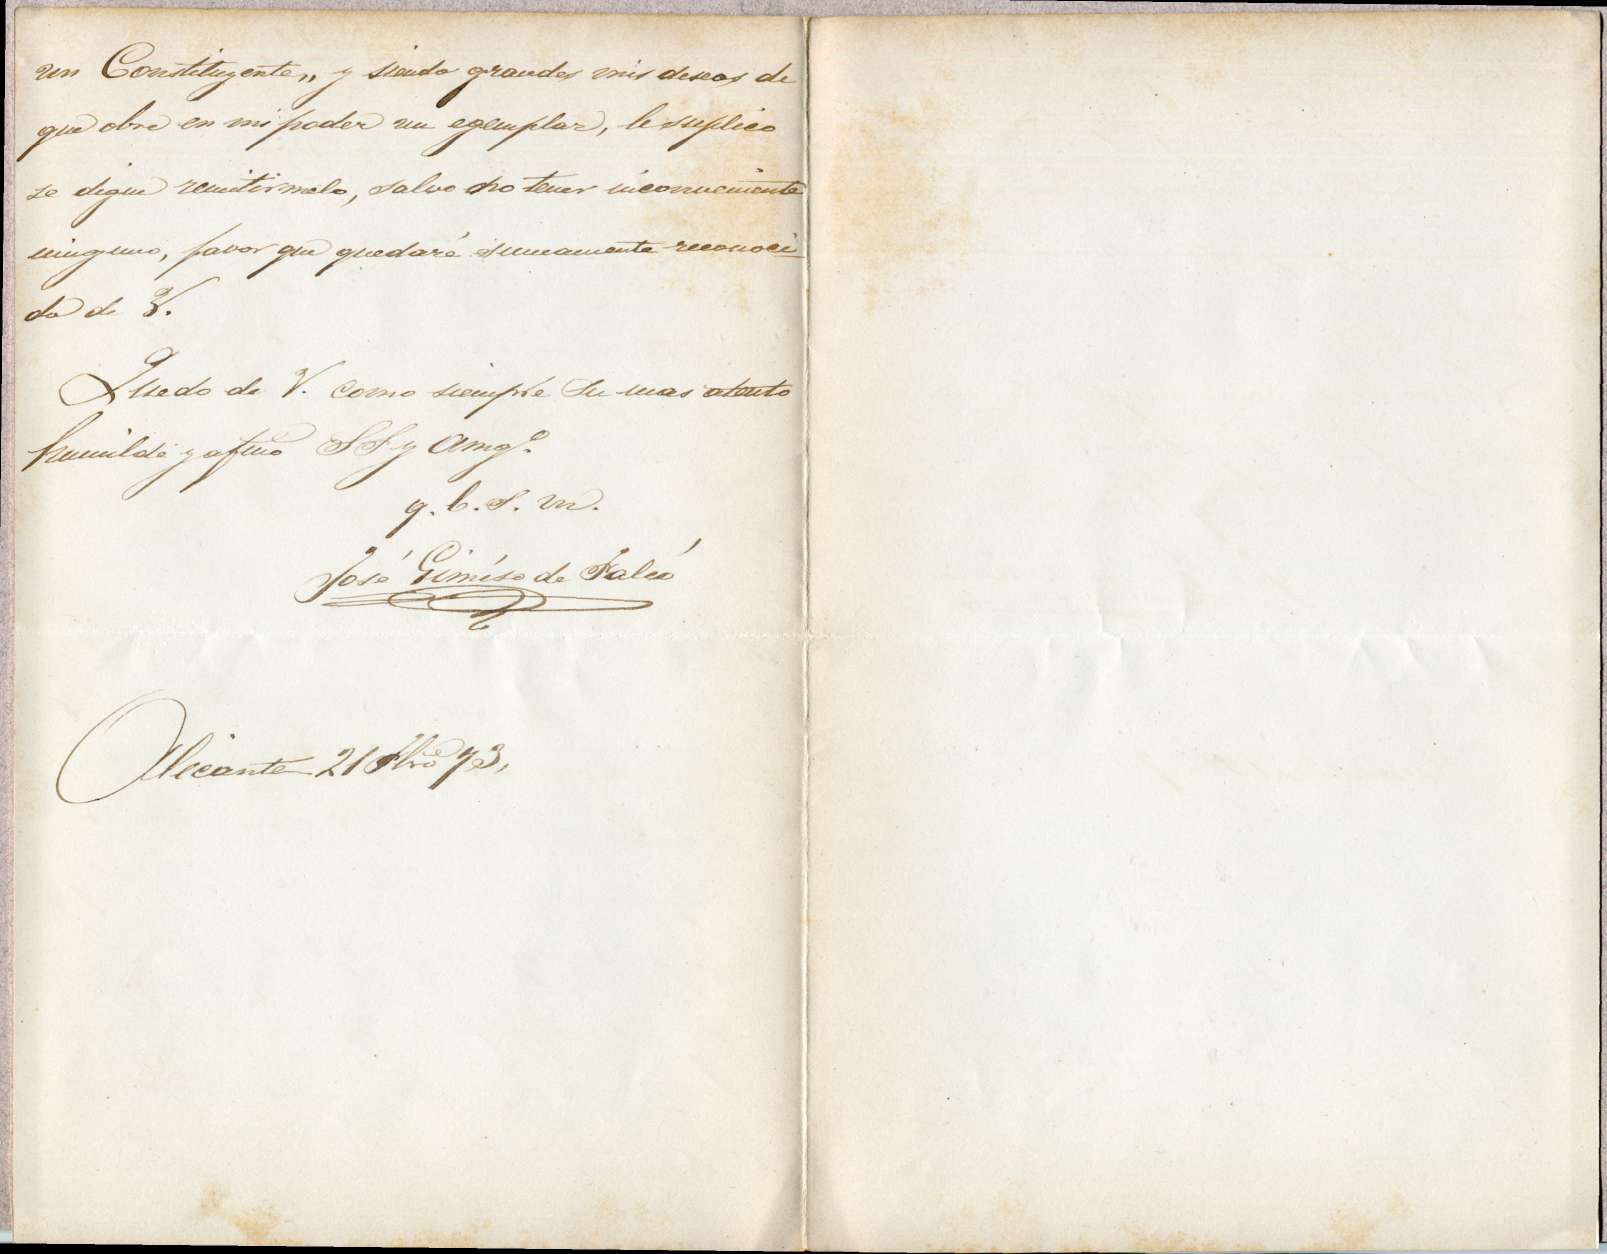 un Constituyente„ y siendo grandes mis deseos de
que obre en mi poder un egemplar, le suplico
se digne remitirmelo, salvo no tener inconveniente
ninguno, favor que quedaré sumamente reconoci
do de V.
Quedo de V. como siempre su mas atento
humilde y afmo S S y Amgo.
q. b. s. m.
José Giménez de Falcó
Alicante 21 Fbro 73,